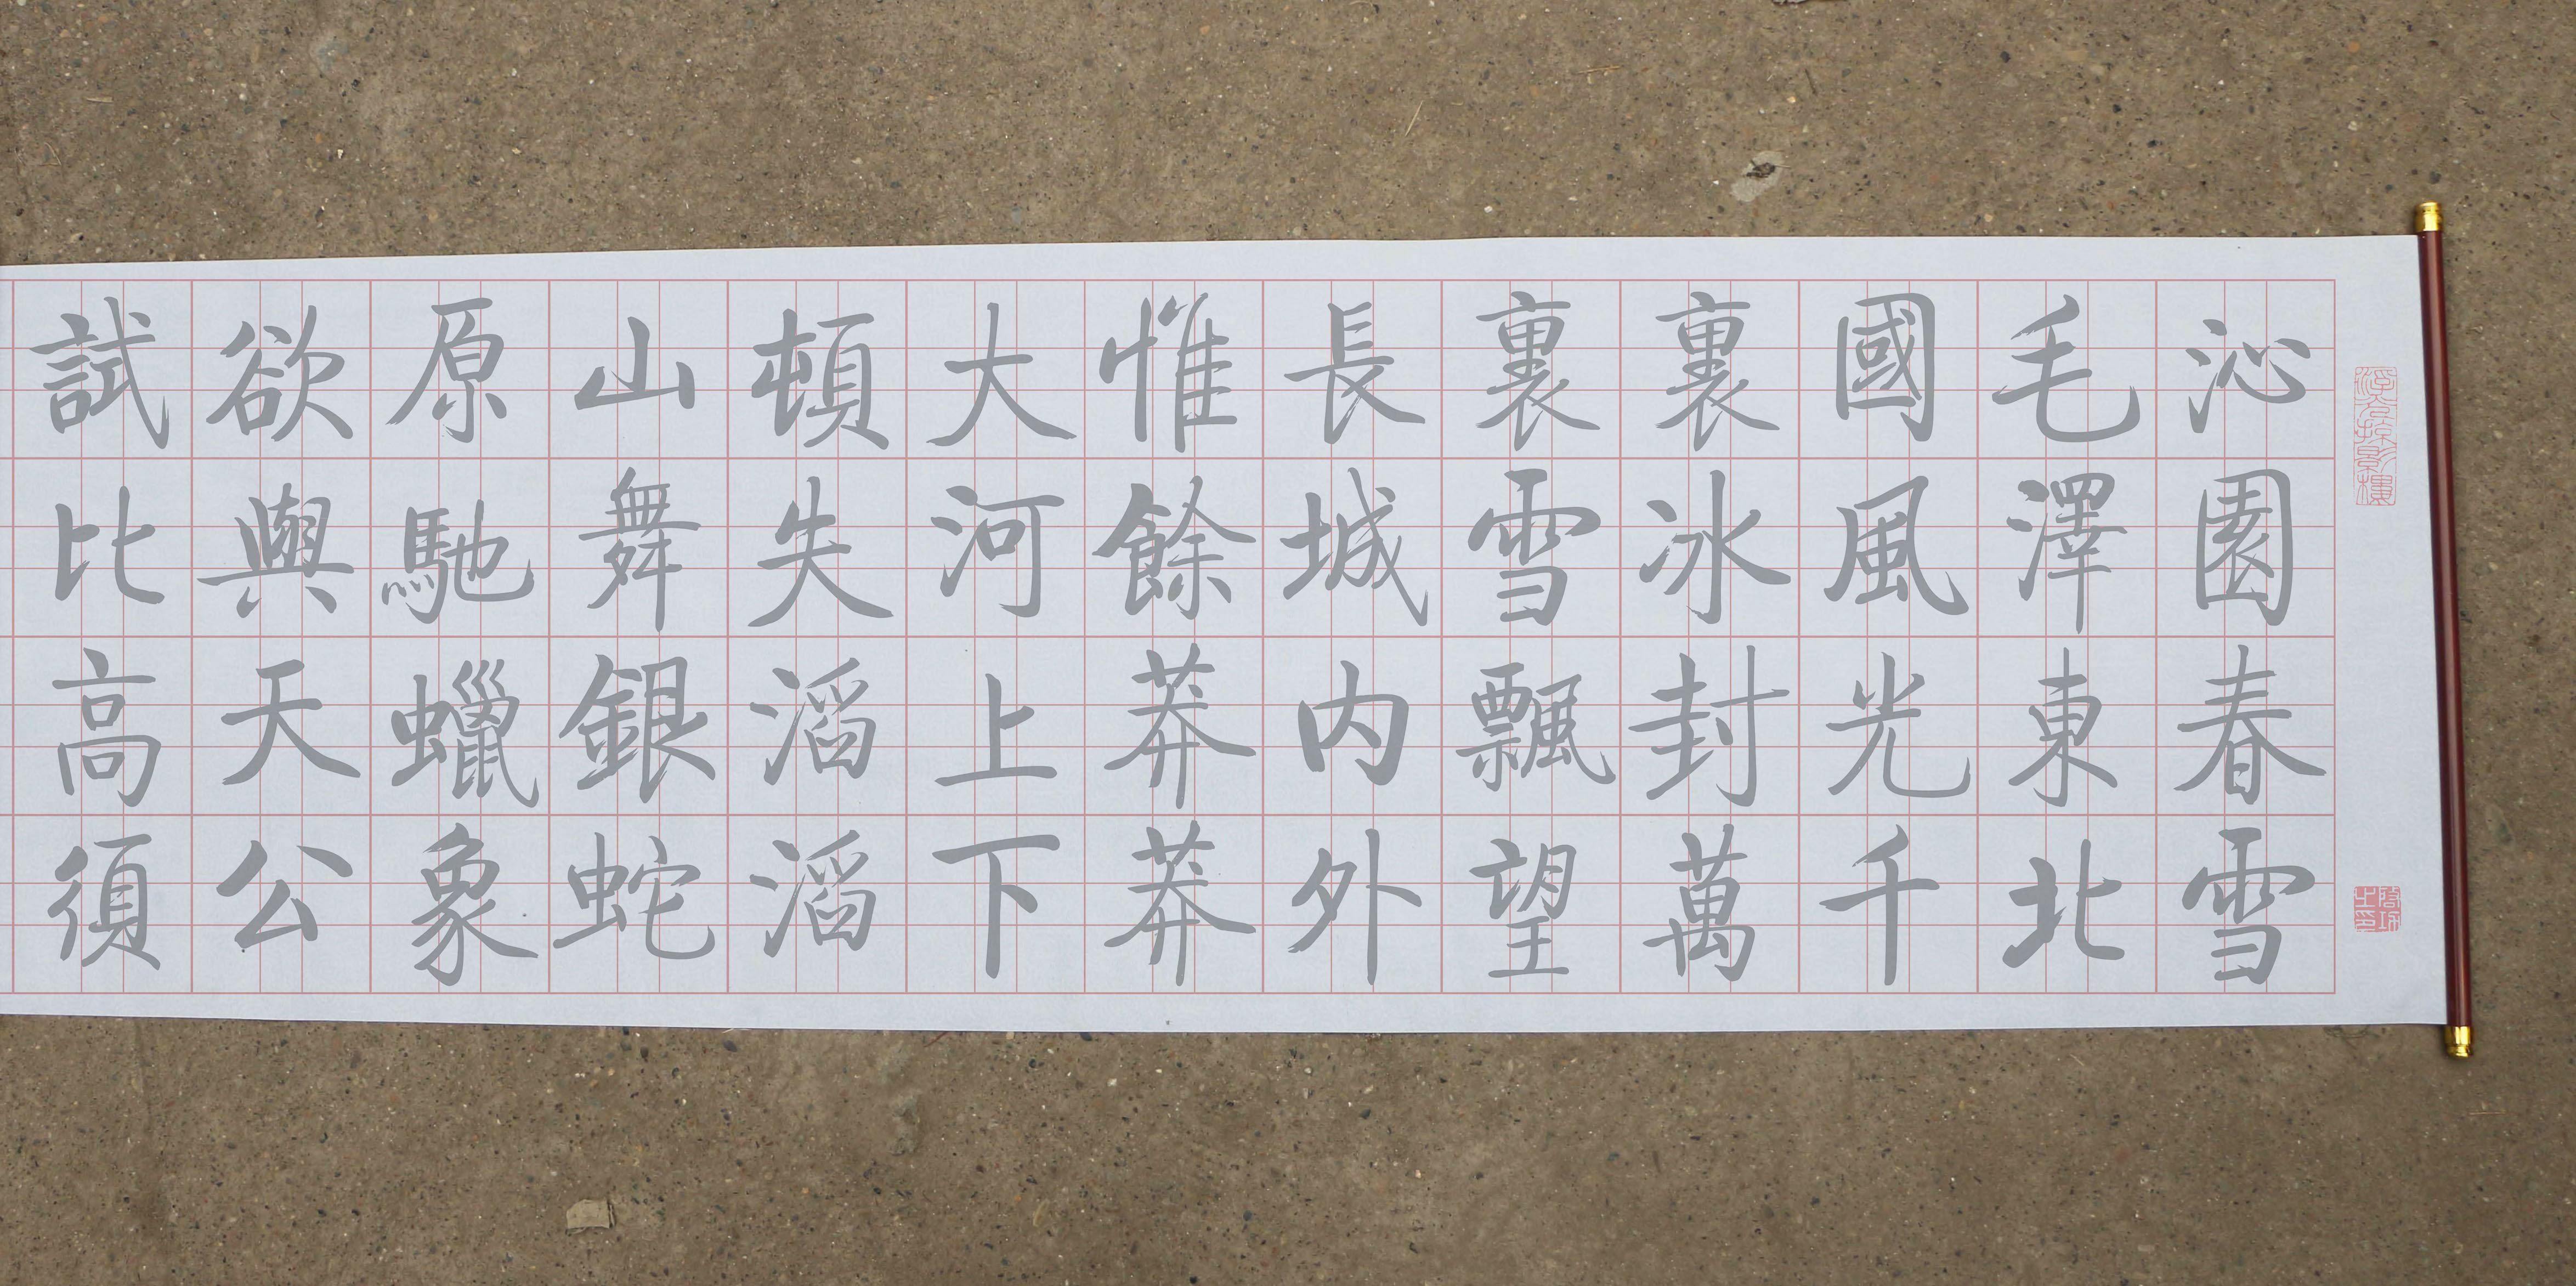 浮光掠影樓
啓功之印
沁園春雪
毛澤東北
國風光千
裏冰封萬
裏雪飄望
長城内外
惟餘莽莽
大河上下
頓失滔滔
山舞銀蛇
原馳蠟象
欲與天公
試比高須